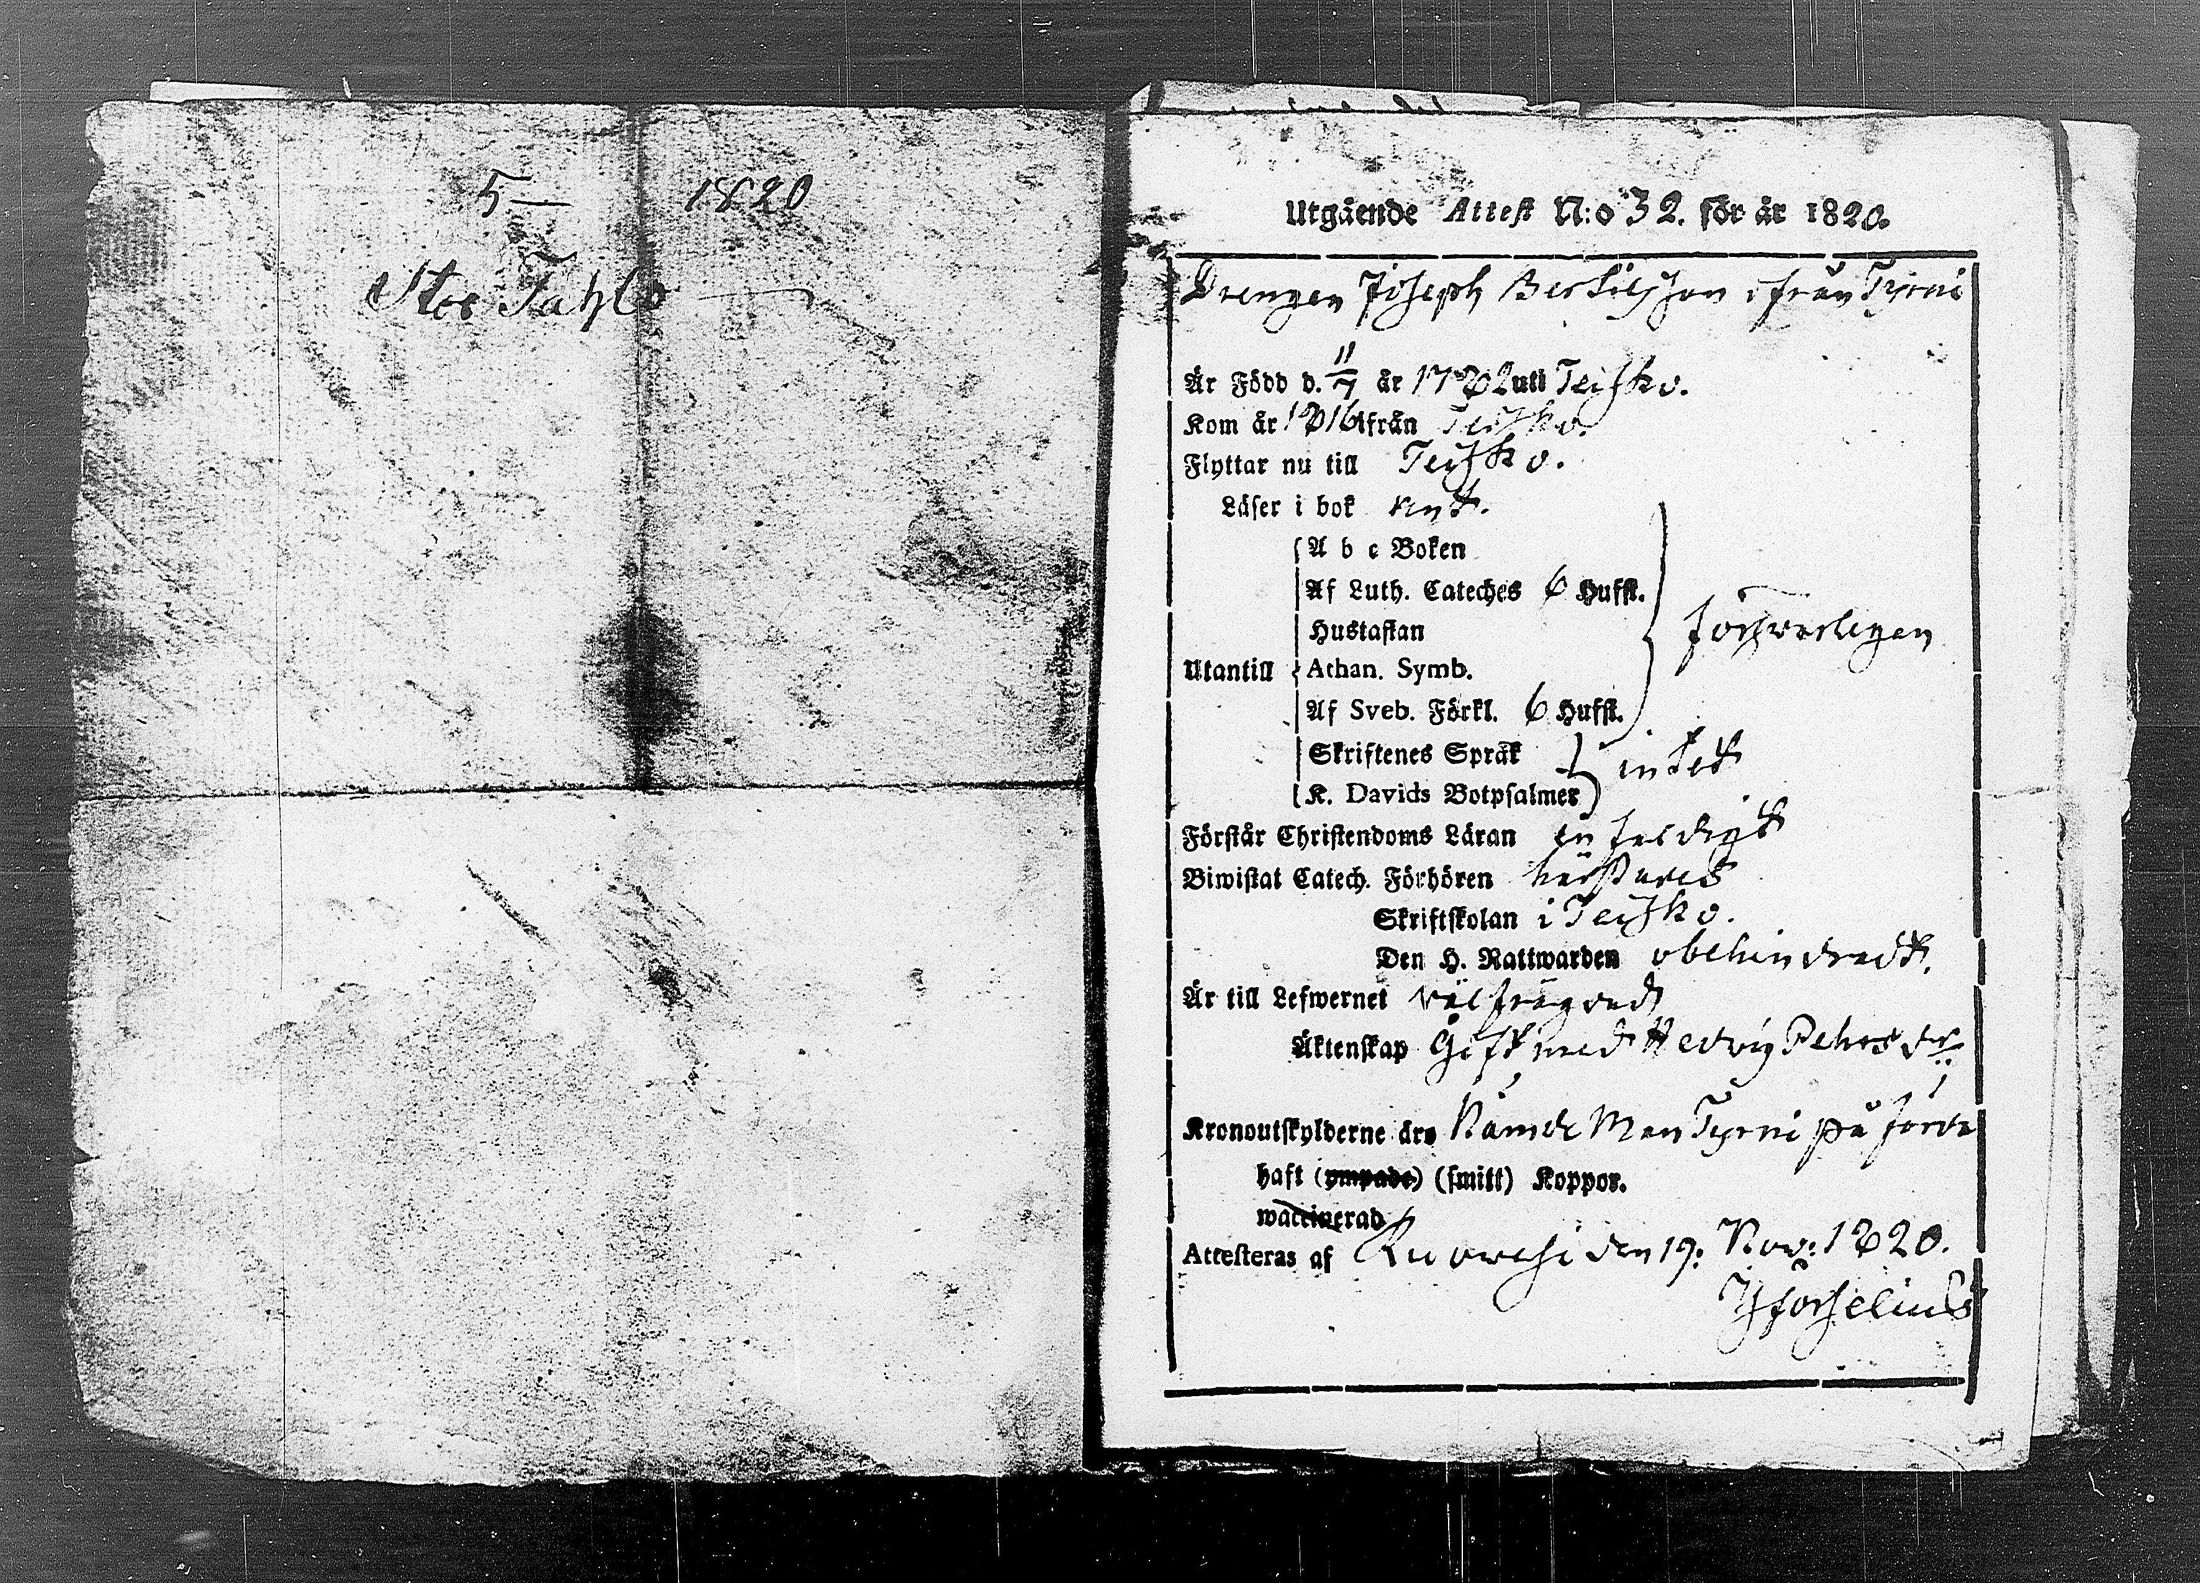 5 — 1820
Stor Tahlo
Utgående Attest N:o 32. för år 1820.
Drengen Joseph Bertilsson ifrån Tyrni
Är Född d. 11/7 år 1782 uti Teisko.
Kom år 1816 ifrån Teisko.
Flyttar nu till Teisko.
Läser i bok nyt.
A b c Boken
Af Luth. Cateches 6 Hufst.
Hustaflan
försvarligen
Utantill Athan. Symb.
Af Sveb. Förkl. 6 Hufst.
Skriftenes Språk
intet
K. Davids Botpsalmer
Förstår Christendoms Läran enfaldigt
Biwistat Catech. Förhören härstädes
Skriftskolan i Teisko.
Den H. Nattwarden obehindradt.
Är till Lefwernet välfrägdad
Äktenskap Gift med Hedvig Pehrsdr
Kronoutskylderne äro Nämde Man Tyrni på förde
haft (ympade) (smitt) Koppor.
waccinerad
Attesteras af Ruovesi den 19. Nov: 1820.
Forselius